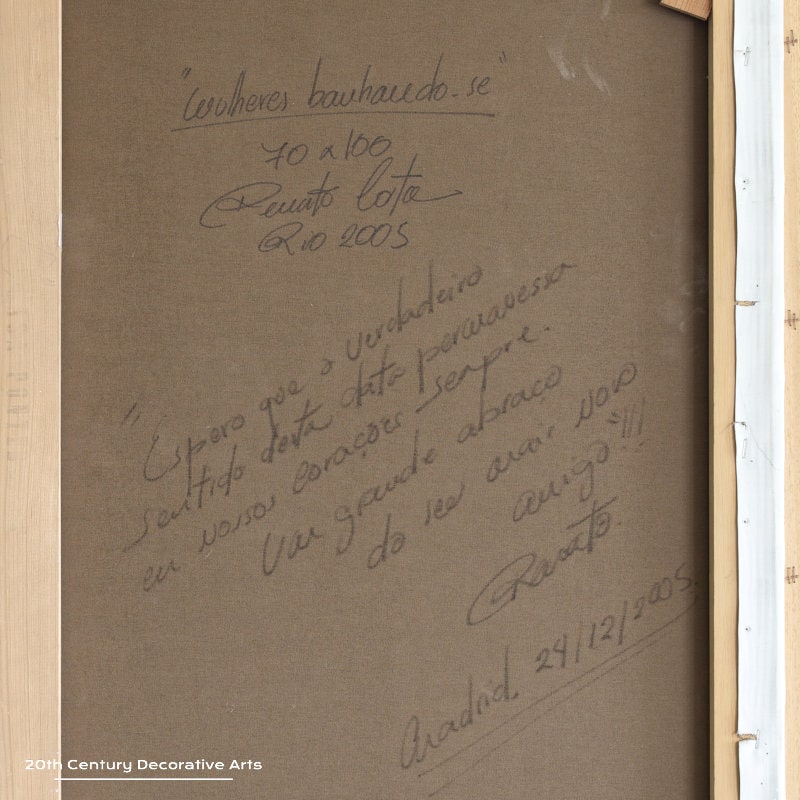 "Mulheres banhando-se"
70 x 100
Renato Cota
Rio 2005
"Espero que o verdadeiro
sentido desta data permanessa
em nossos corações sempre.
Um grande abraço
do seu mais novo
amigo"!!!
Renato.
Madrid. 24/12/2005.
20th Century Decorative Arts